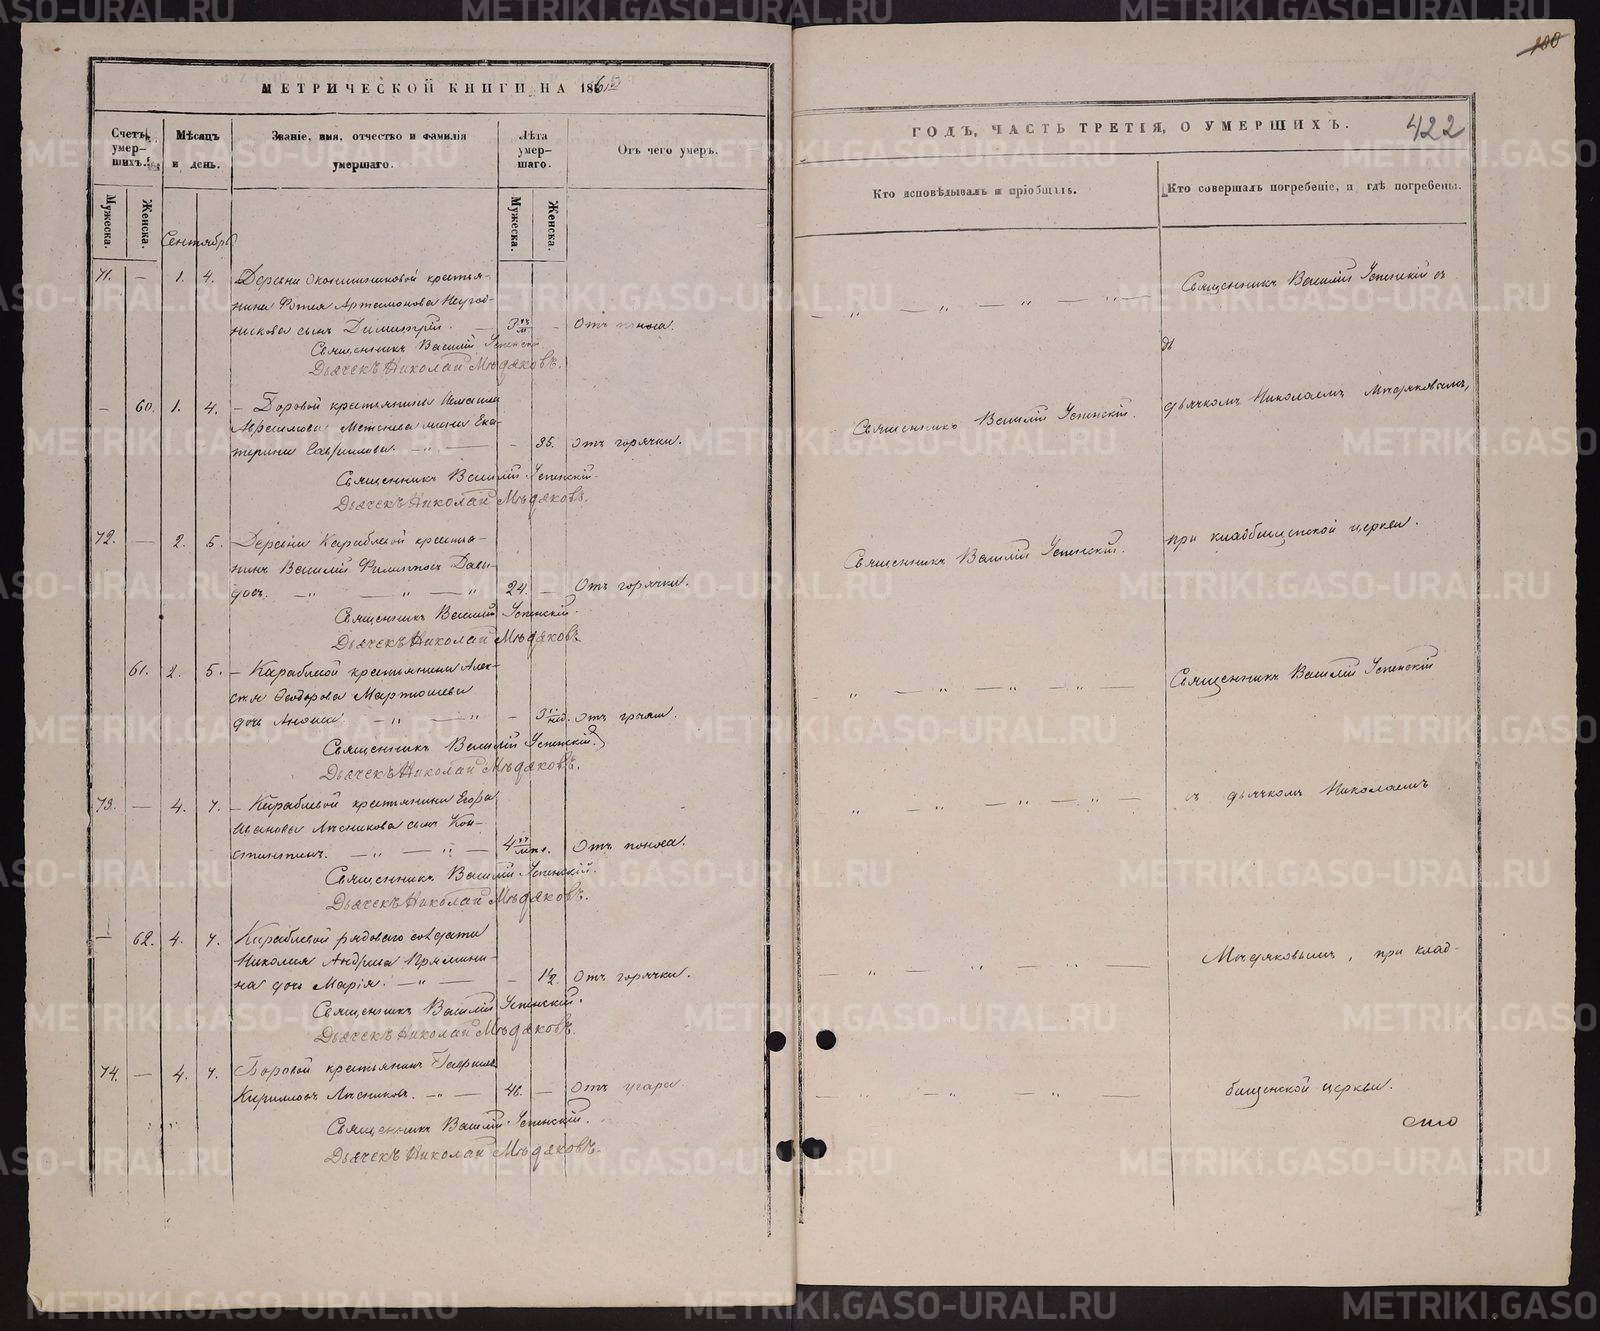 МЕТРИЧЕСКОЙ КНИГИ НА 1865
Счетъ умер-шихъ.
Мужеска.
Женска.
Мѣсяцъ и день.
Званіе, имя, отчество и фамилія умершаго.
Лѣта умер-шаго.
Мужеска.
Женска.
Отъ чего умеръ.
Сентябрь
71. — 1. 4. Деревни крестья-
нина Фотія Артамонова
сынъ Димитрій. — 3 м. — Отъ поноса.
Священникъ Василій Успенскій
Дьячекъ Николай Мѣдяковъ.
— 60. 1. 4. — Боровой крестьянина
жена Ека-
терина Гаврилова. — „ — — 35. Отъ горячки.
Священникъ Василій Успенскій.
Дьячекъ Николай Мѣдяковъ.
72. — 2. 5. Деревни Караблевой крестья-
нинъ Василій Филипповъ Давы-
довъ. — „ — „ — „ 24. — Отъ горячки.
Священникъ Василій Успенскій.
Дьячекъ Николай Мѣдяковъ.
61. 2. 5. — Караблевой крестьянина Алек-
сѣя Ѳеодорова Мартюшева
дочь — „ — „ — 3 нед. Отъ
Священникъ Василій Успенскій.
Дьячекъ Николай Мѣдяковъ.
73. — 4. 7. — Караблевой крестьянина Егора
Иванова Лѣсникова сынъ Кон-
стантинъ. — „ — „ — 4 Отъ поноса.
Священникъ Василій Успенскій.
Дьячекъ Николай Мѣдяковъ.
— 62. 4. 7. Караблевой рядоваго солдата
Николая Андреева Прямини-
на дочь Марія. — „ — — 1½. Отъ горячки.
Священникъ Василій Успенскій.
Дьячекъ Николай Мѣдяковъ.
74. — 4. 7. Боровой крестьянинъ Гаврило
Кирилловъ Лѣсниковъ. — „ — 46. — Отъ угара.
Священникъ Василій Успенскій.
Дьячекъ Николай Мѣдяковъ.
100
ГОДЪ, ЧАСТЬ ТРЕТІЯ, О УМЕРШИХЪ.
422
Кто исповѣдывалъ и пріобщалъ.
Кто совершалъ погребеніе, и гдѣ погребены.
Священникъ Василій Успенскій съ
дь
Священникъ Василій Успенскій. дьячкомъ Николаемъ Мѣдяковымъ,
Священникъ Василій Успенскій. при кладбищенской церкви.
Священникъ Василій Успенскій
съ дьячкомъ Николаемъ
Мѣдяковымъ, при клад-
бищенской церкви.
METRIKI.GASO-URAL.RU